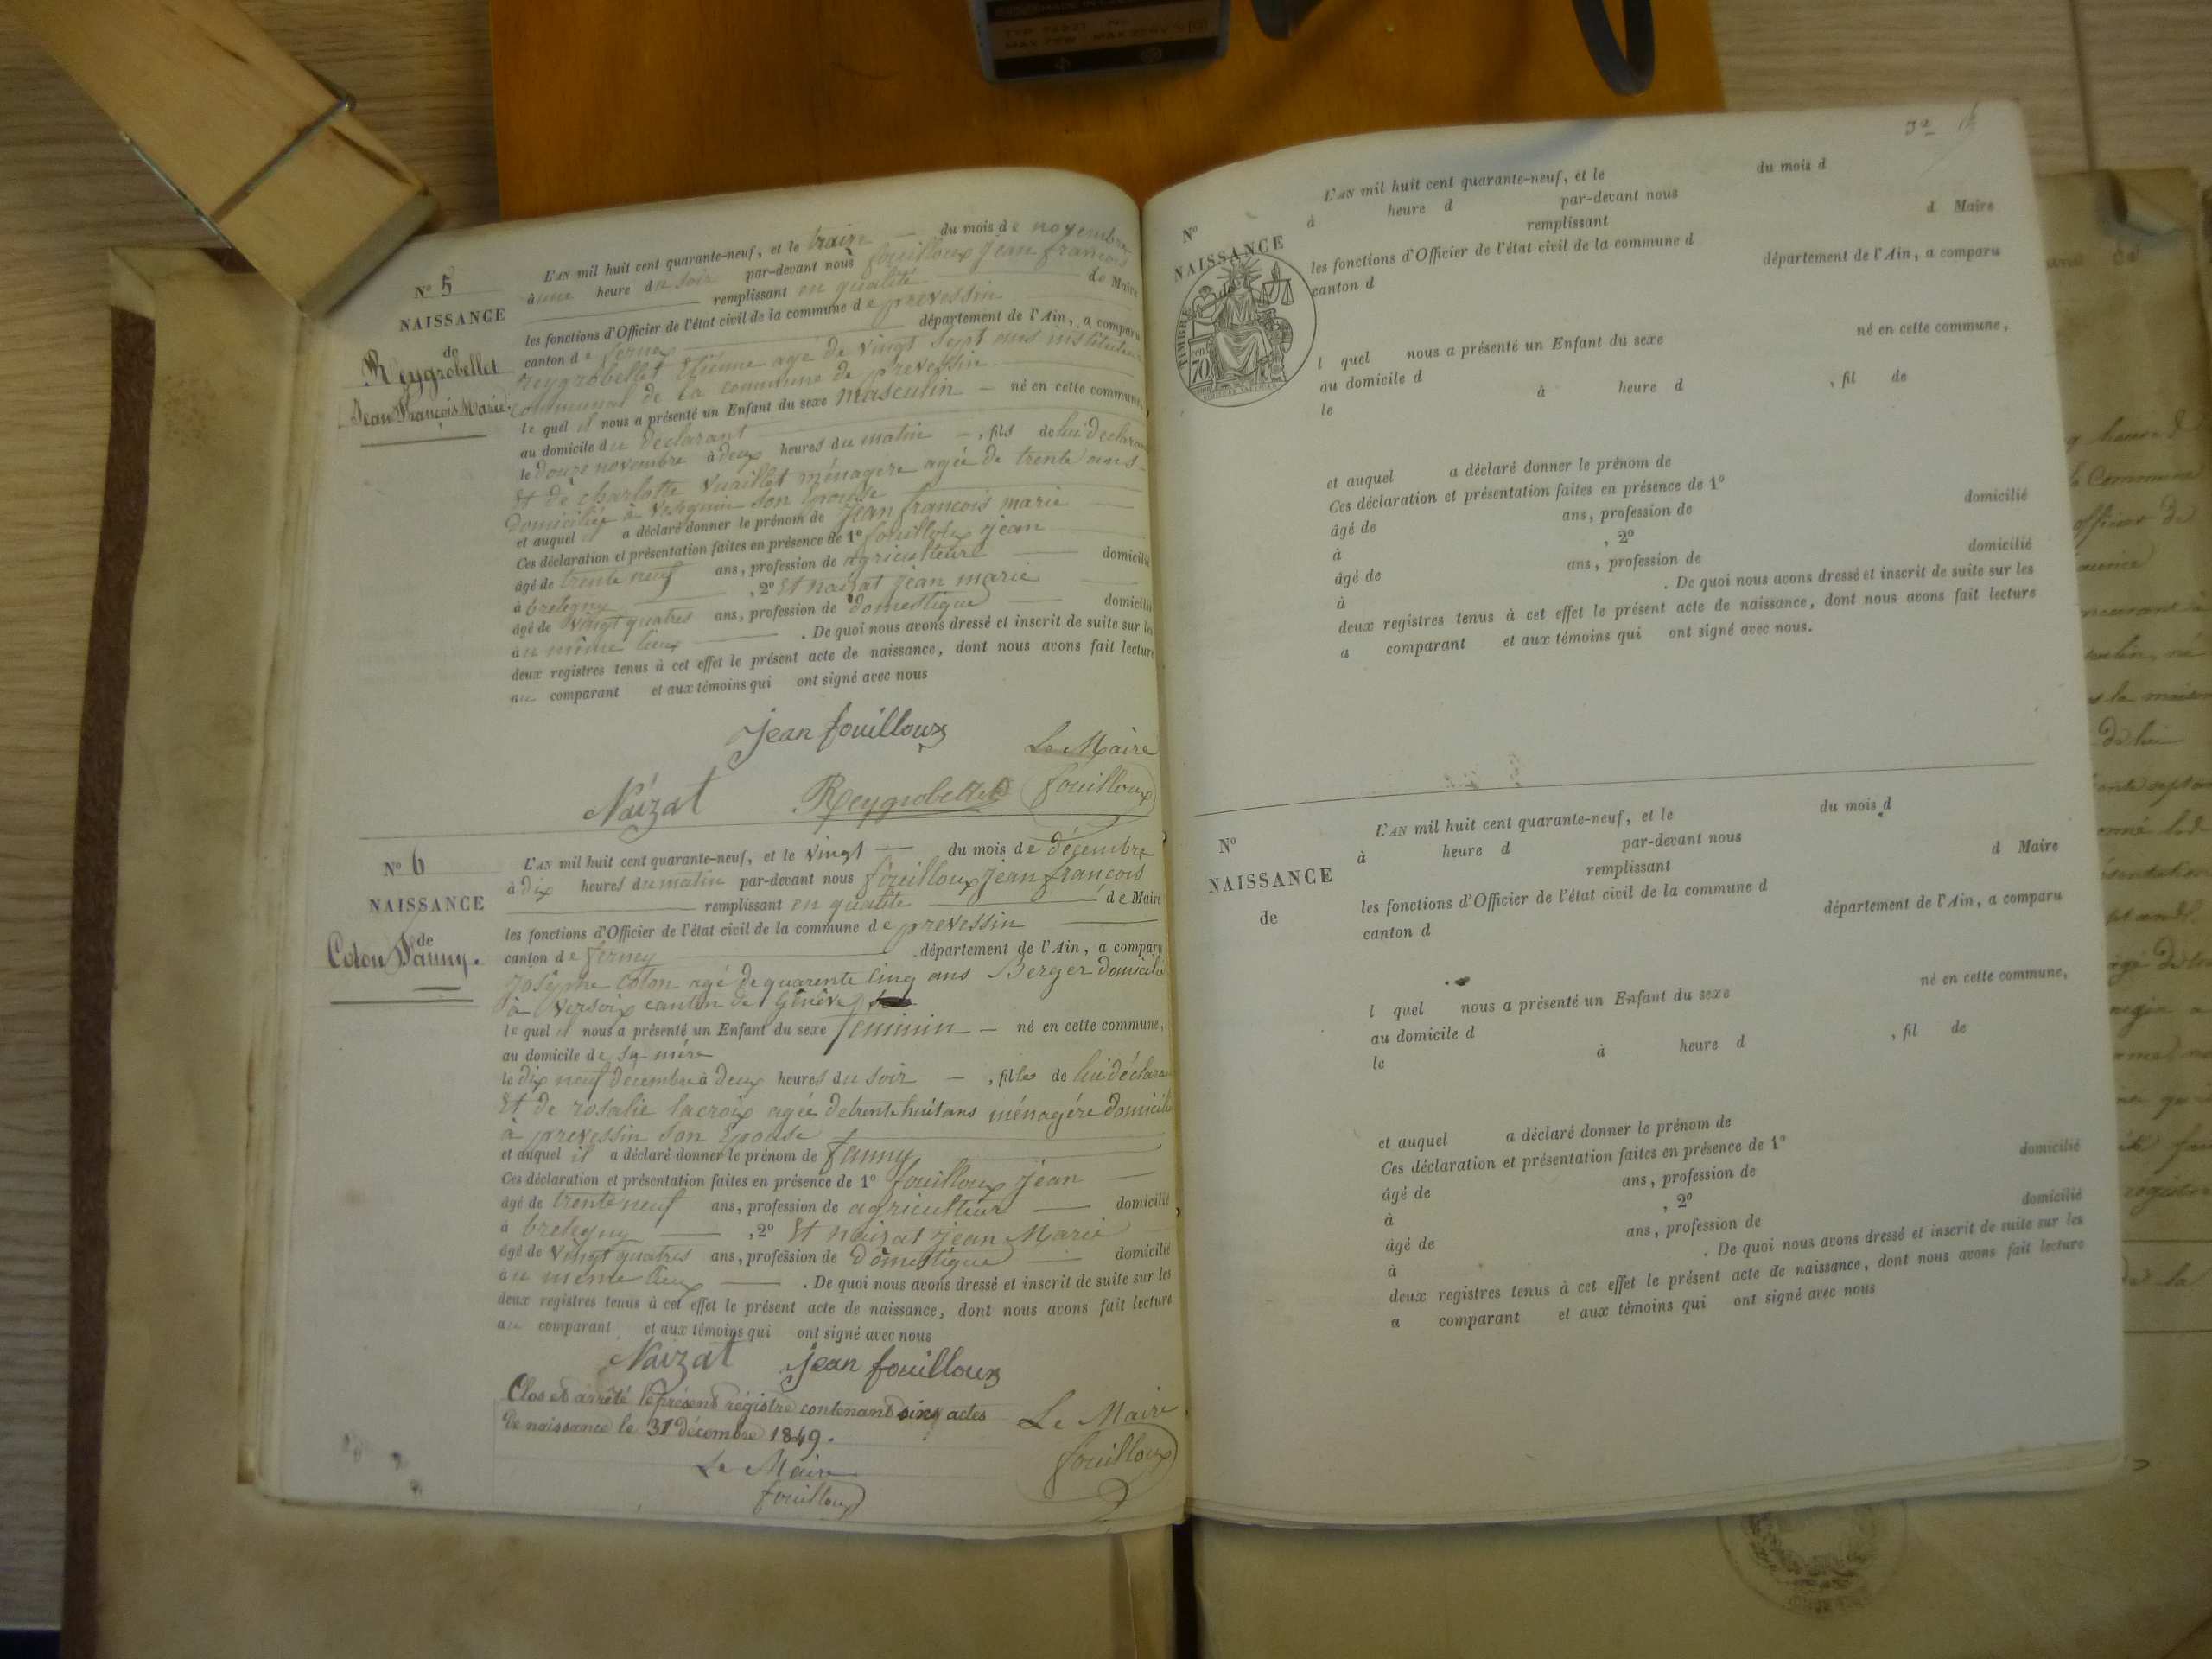 Nº 5
NAISSANCE
de
Reygrobellet
Jean François Marie.
L'AN mil huit cent quarante-neuf, et le traize du mois de novembre
à une heure du soir par-devant nous fouilloux jean francois
remplissant en qualité de Maire
les fonctions d'Officier de l'état civil de la commune de prevessin
canton de ferney département de l'Ain, a comparu
reygrobellet Etienne agé de vingt sept ans instituteur
communal de la commune de prevessin
le quel il nous a présenté un Enfant du sexe masculin né en cette commune,
au domicile du déclarant
le douze novembre à deux heures du matin , fils de lui déclarant
Et de charlotte Vuaillet ménagère agée de trente ans
domiciliée à son épouse
et auquel il a déclaré donner le prénom de jean francois marie
Ces déclaration et présentation faites en présence de 1º fouilloux jean
âgé de trente neuf ans, profession de agriculteur domicilié
à bretegny , 2º Et naizat jean marie
âgé de vingt quatres ans, profession de domestique domicilié
au même lieux . De quoi nous avons dressé et inscrit de suite sur les
deux registres tenus à cet effet le présent acte de naissance, dont nous avons fait lecture
au comparant et aux témoins qui ont signé avec nous
jean fouilloux
Le Maire
Naizat Reygrobellet fouilloux
Nº 6
NAISSANCE
de
Colon Fanny.
L'AN mil huit cent quarante-neuf, et le vingt du mois de décembre
à dix heures du matin par-devant nous fouilloux jean francois
remplissant en qualité de Maire
les fonctions d'Officier de l'état civil de la commune de prevessin
canton de ferney département de l'Ain, a comparu
josyme colon agé de quarente cinq ans Berger domicilié
à Versoix canton de Genève
le quel il nous a présenté un Enfant du sexe feminin né en cette commune,
au domicile de sa mère
le dix neuf décembre à deux heures du soir , filles de lui déclarant
Et de rosalie lacroix agée de trente huit ans ménagére domicilié
à prevessin son Epouse
et auquel il a déclaré donner le prénom de fanny
Ces déclaration et présentation faites en présence de 1º fouilloux jean
âgé de trente neuf ans, profession de agriculteur domicilié
à bretegny , 2º Et naizat jean Marie
âgé de vingt quatres ans, profession de domestique domicilié
au même lieux . De quoi nous avons dressé et inscrit de suite sur les
deux registres tenus à cet effet le présent acte de naissance, dont nous avons fait lecture
au comparant et aux témoins qui ont signé avec nous
Naizat jean fouilloux
Clos et arrêté le présent régistre contenant actes
de naissance le 31 décembre 1849.
Le Maire
fouilloux
Le Maire
fouilloux
Nº
NAISSANCE
de
TIMBRE
70
L'AN mil huit cent quarante-neuf, et le du mois d
à heure d par-devant nous
remplissant d Maire
les fonctions d'Officier de l'état civil de la commune d
canton d département de l'Ain, a comparu
l quel nous a présenté un Enfant du sexe né en cette commune,
au domicile d
le à heure d , fil de
et auquel a déclaré donner le prénom de
Ces déclaration et présentation faites en présence de 1º
âgé de ans, profession de domicilié
à , 2º
âgé de ans, profession de domicilié
à . De quoi nous avons dressé et inscrit de suite sur les
deux registres tenus à cet effet le présent acte de naissance, dont nous avons fait lecture
a comparant et aux témoins qui ont signé avec nous.
Nº
NAISSANCE
de
L'AN mil huit cent quarante-neuf, et le du mois d
à heure d par-devant nous
remplissant d Maire
les fonctions d'Officier de l'état civil de la commune d
canton d département de l'Ain, a comparu
l quel nous a présenté un Enfant du sexe né en cette commune,
au domicile d
le à heure d , fil de
et auquel a déclaré donner le prénom de
Ces déclaration et présentation faites en présence de 1º
âgé de ans, profession de domicilié
à , 2º
âgé de ans, profession de domicilié
à . De quoi nous avons dressé et inscrit de suite sur les
deux registres tenus à cet effet le présent acte de naissance, dont nous avons fait lecture
a comparant et aux témoins qui ont signé avec nous